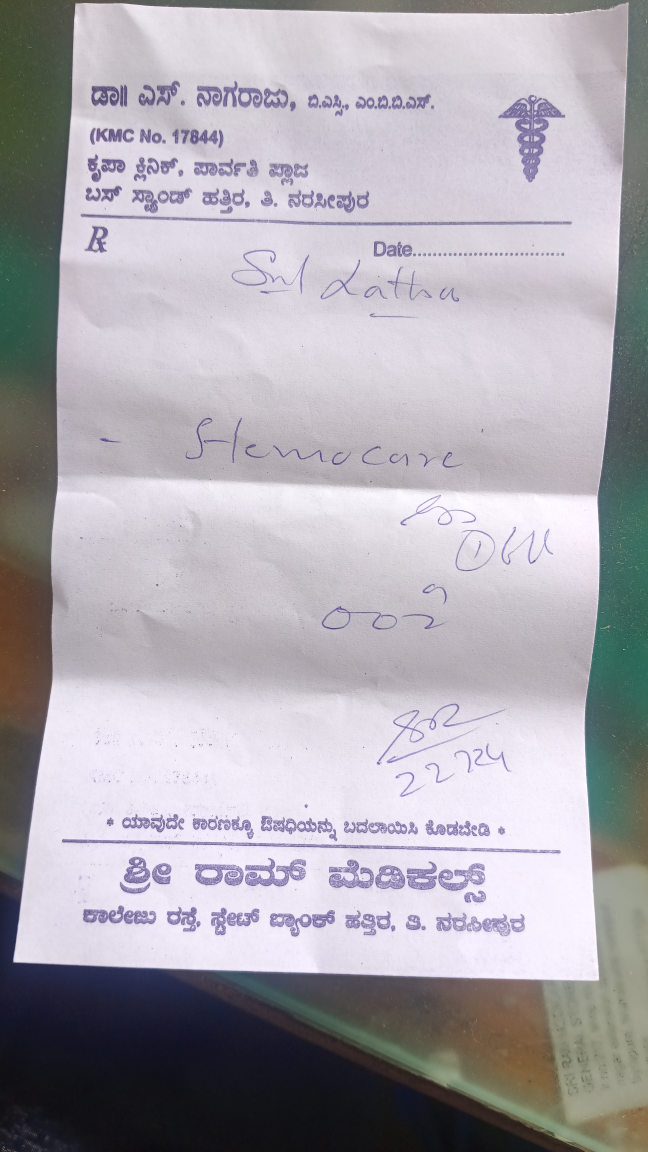 ಡಾ|| ಎಸ್. ನಾಗರಾಜು, ಬಿ.ಎಸ್ಸಿ, ಎಂ.ಬಿ.ಬಿ.ಎಸ್.
(KMC No. 17844)
ಕೃಪಾ ಕ್ಲಿನಿಕ್, ಪಾರ್ವತಿ ಪ್ಲಾಜ
ಬಸ್ ಸ್ಟ್ಯಾಂಡ್ ಹತ್ತಿರ, ತಿ. ನರಸೀಪುರ
℞ Date..............................
Latha
- Hemocare
22724
* ಯಾವುದೇ ಕಾರಣಕ್ಕೂ ಔಷಧಿಯನ್ನು ಬದಲಾಯಿಸಿ ಕೊಡಬೇಡಿ *
ಶ್ರೀ ರಾಮ್ ಮೆಡಿಕಲ್ಸ್
ಕಾಲೇಜು ರಸ್ತೆ, ಸ್ಟೇಟ್ ಬ್ಯಾಂಕ್ ಹತ್ತಿರ, ತಿ. ನರಸೀಪುರ